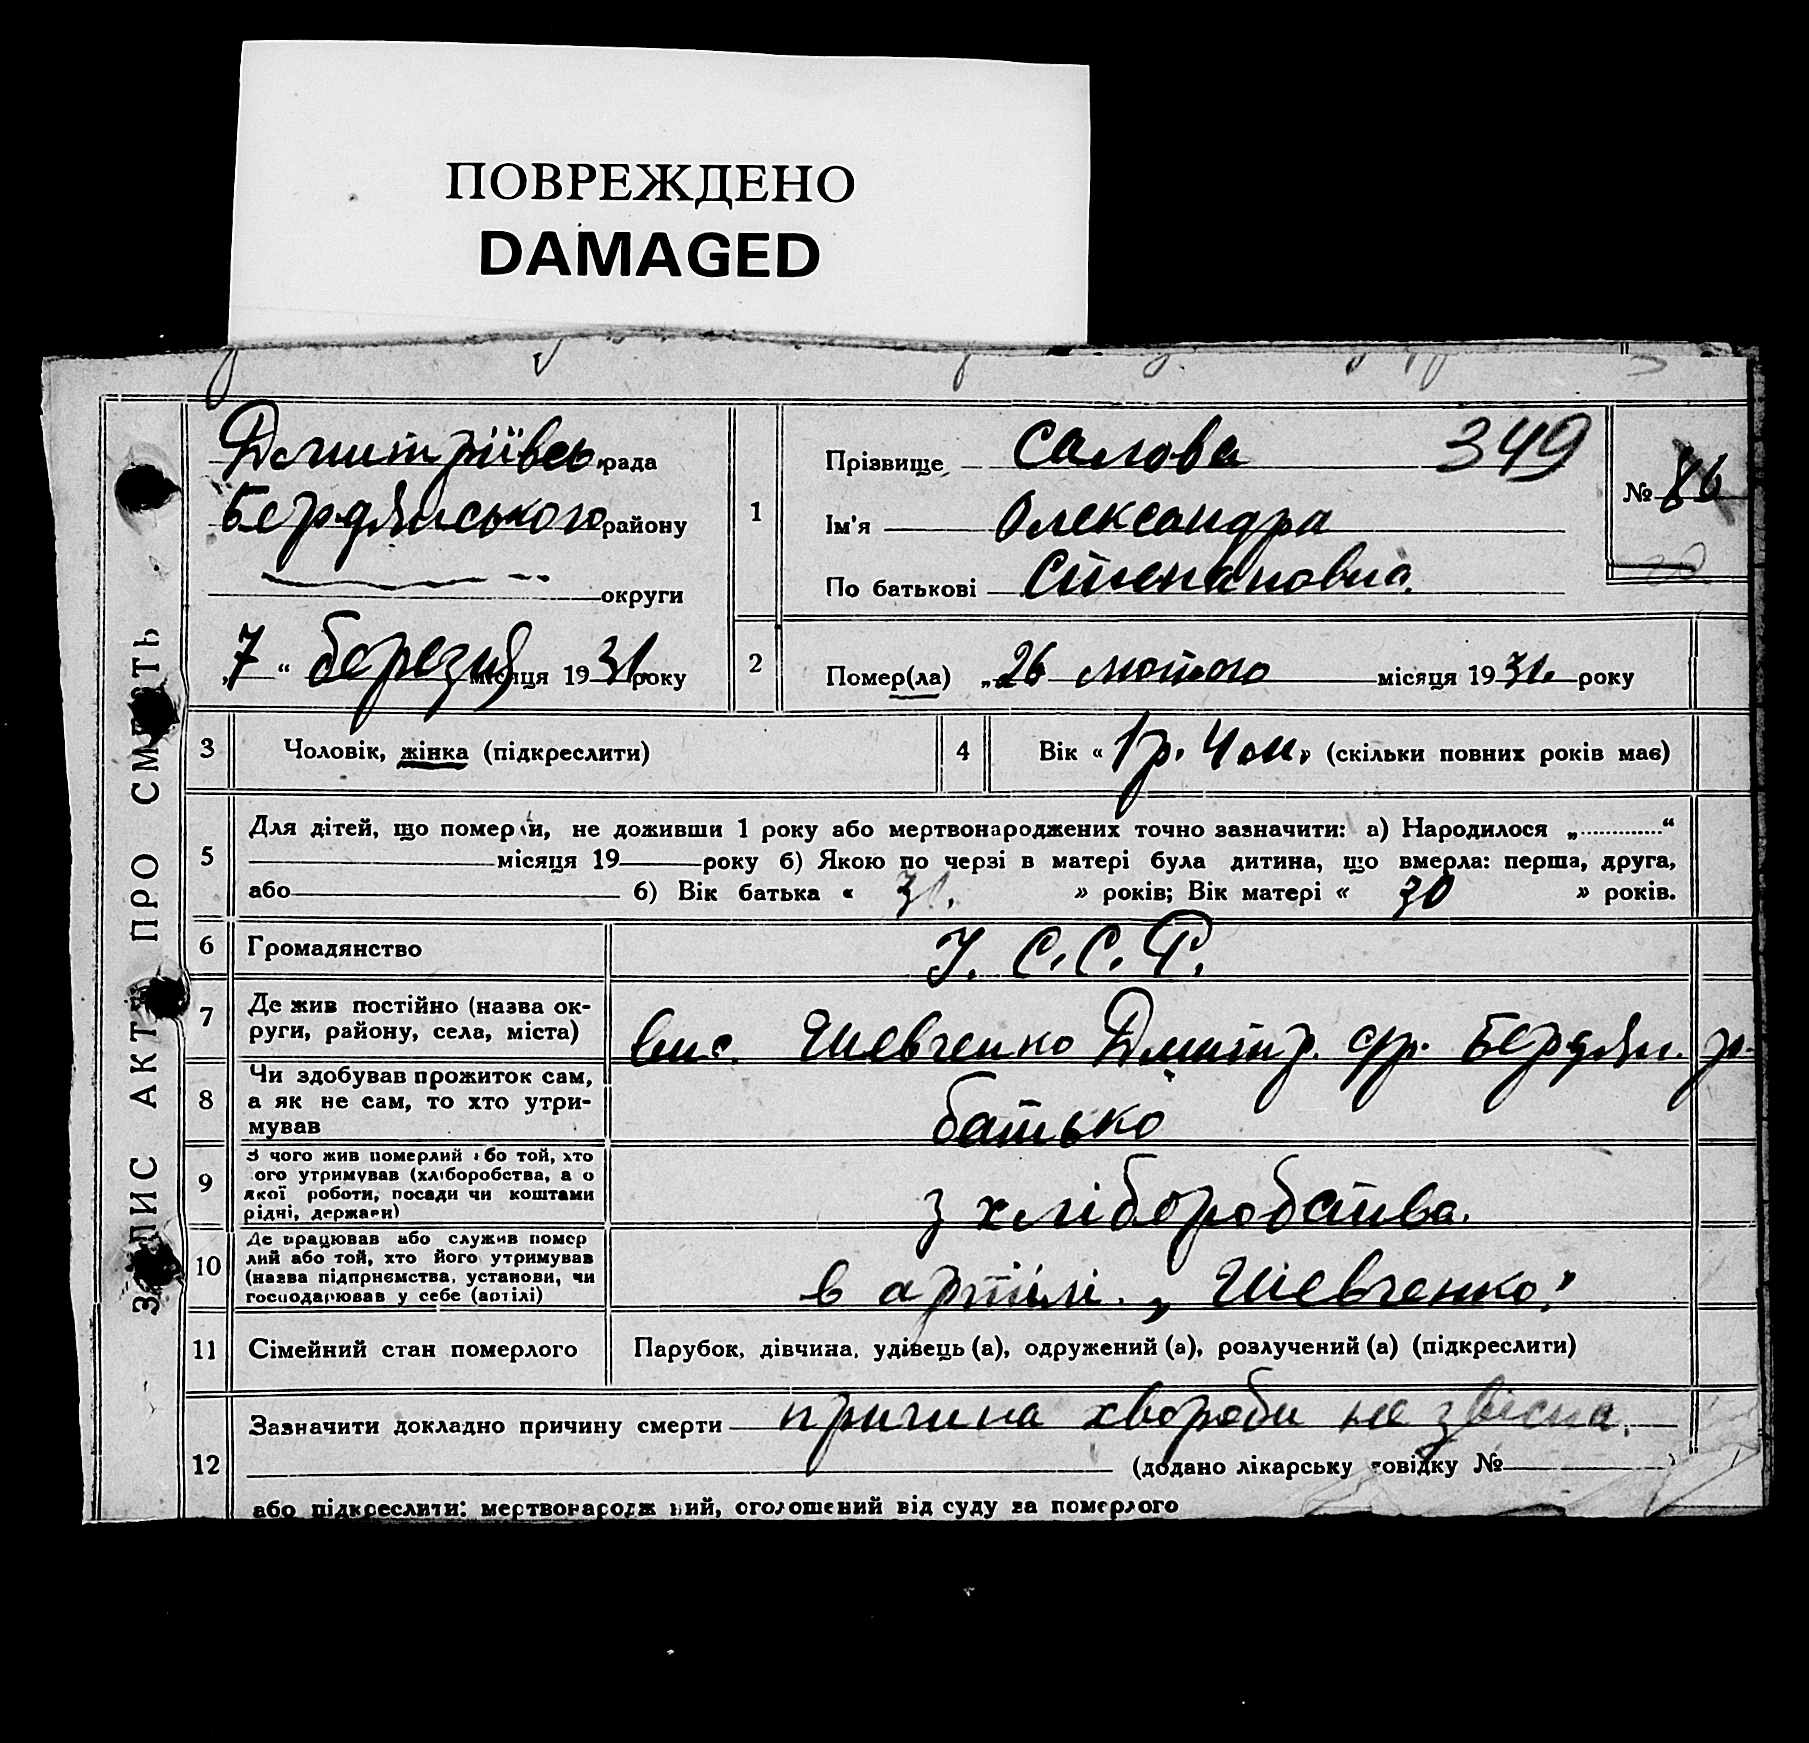 ПОВРЕЖДЕНО
DAMAGED
ЗАПИС АКТУ ПРО СМЕРТЬ
Дмитріївсь. рада
Бердянського району
округи
„7“ березня місяця 1931. року
1
Прізвище Салова 349
Ім'я Олександра
По батькові Степановна.
№ 86
2
Помер(ла) „26 лютого місяця 1931. року
3 Чоловік, жінка (підкреслити)
4 Вік « 1 р. 4 м. » (скільки повних років має)
5
Для дітей, що померли, не доживши 1 року або мертвонароджених точно зазначити: а) Народилося „............“
місяця 19 року б) Якою по черзі в матері була дитина, що вмерла: перша, друга,
або б) Вік батька « 31. » років; Вік матері « 30 » років.
6 Громадянство У. С. С. Р.
7 Де жив постійно (назва ок-
руги, району, села, міста)
вис. Шевченко Дмитр. с/р. Бердян. р.
8 Чи здобував прожиток сам,
а як не сам, то хто утри-
мував
батько
9 З чого жив померлий або той, хто
ого утримував (хліборобства, а о
якої роботи, посади чи коштами
рідні, держави)
з хліборобства.
10 Де працював або служив помер
лий або той, хто його утримував
(назва підприємства, установи, чи
господарював у себе (артілі)
в артілі. „Шевченко."
11 Сімейний стан померлого Парубок, дівчина, удівець (а), одружений (а), розлучений (а) (підкреслити)
12 Зазначити докладно причину смерти причина хвороби не звісна.
(додано лікарську довідку № )
або підкреслити: мертвонародж ний, оголошений від суду за померлого